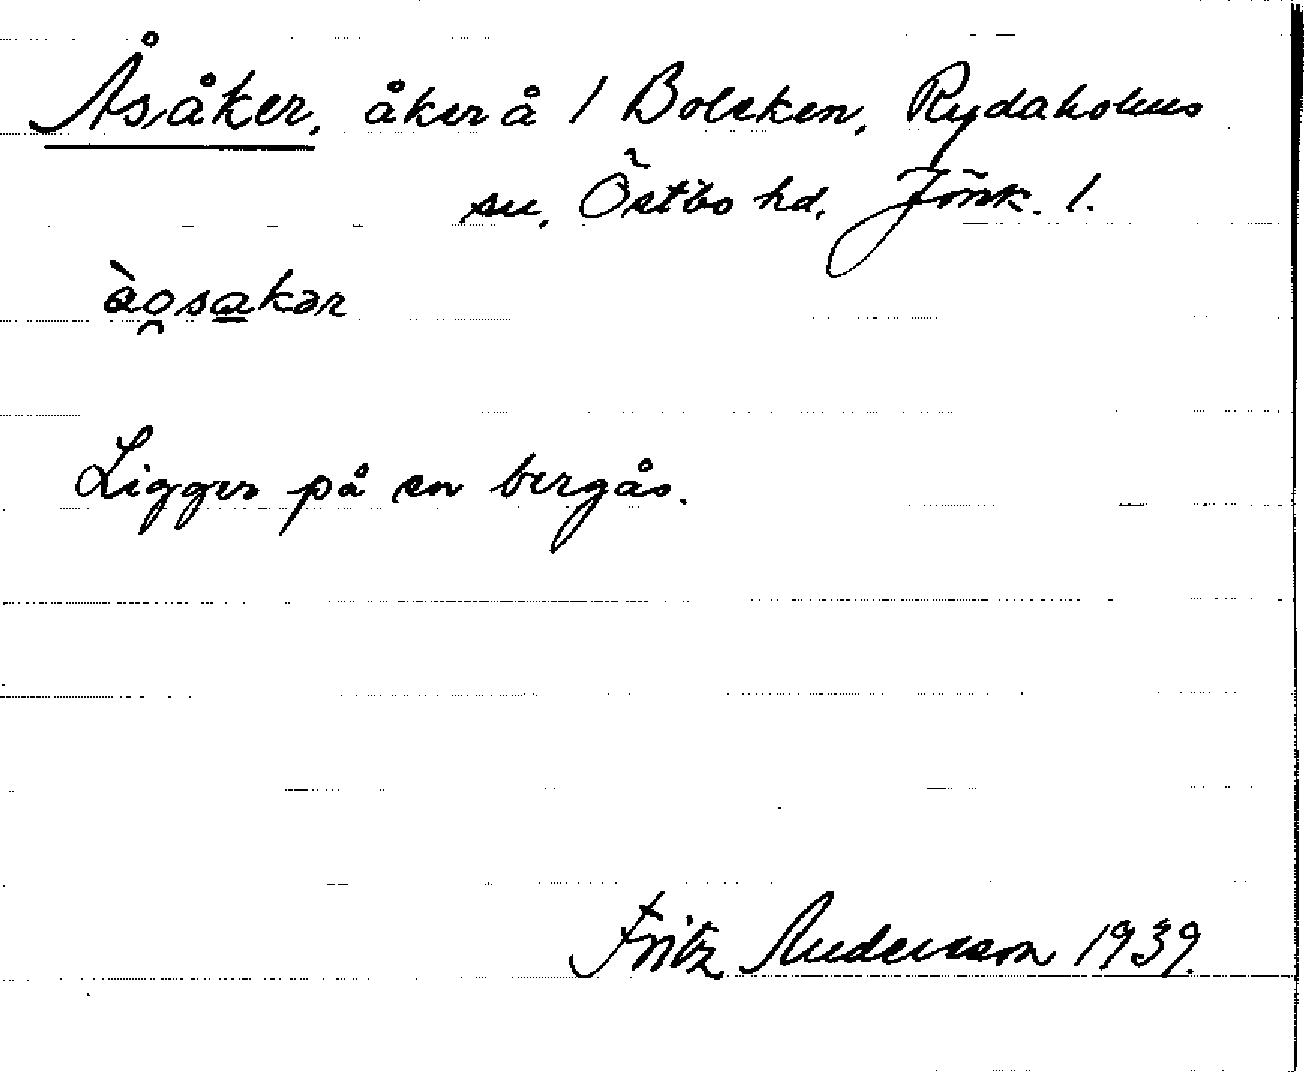 Åsåker, åker å 1 Bolsken, Rydaholms
sn, Östbo hd, Jönk. l.
àosakər
Ligger på en bergås.
Fritz Andersson 1939.